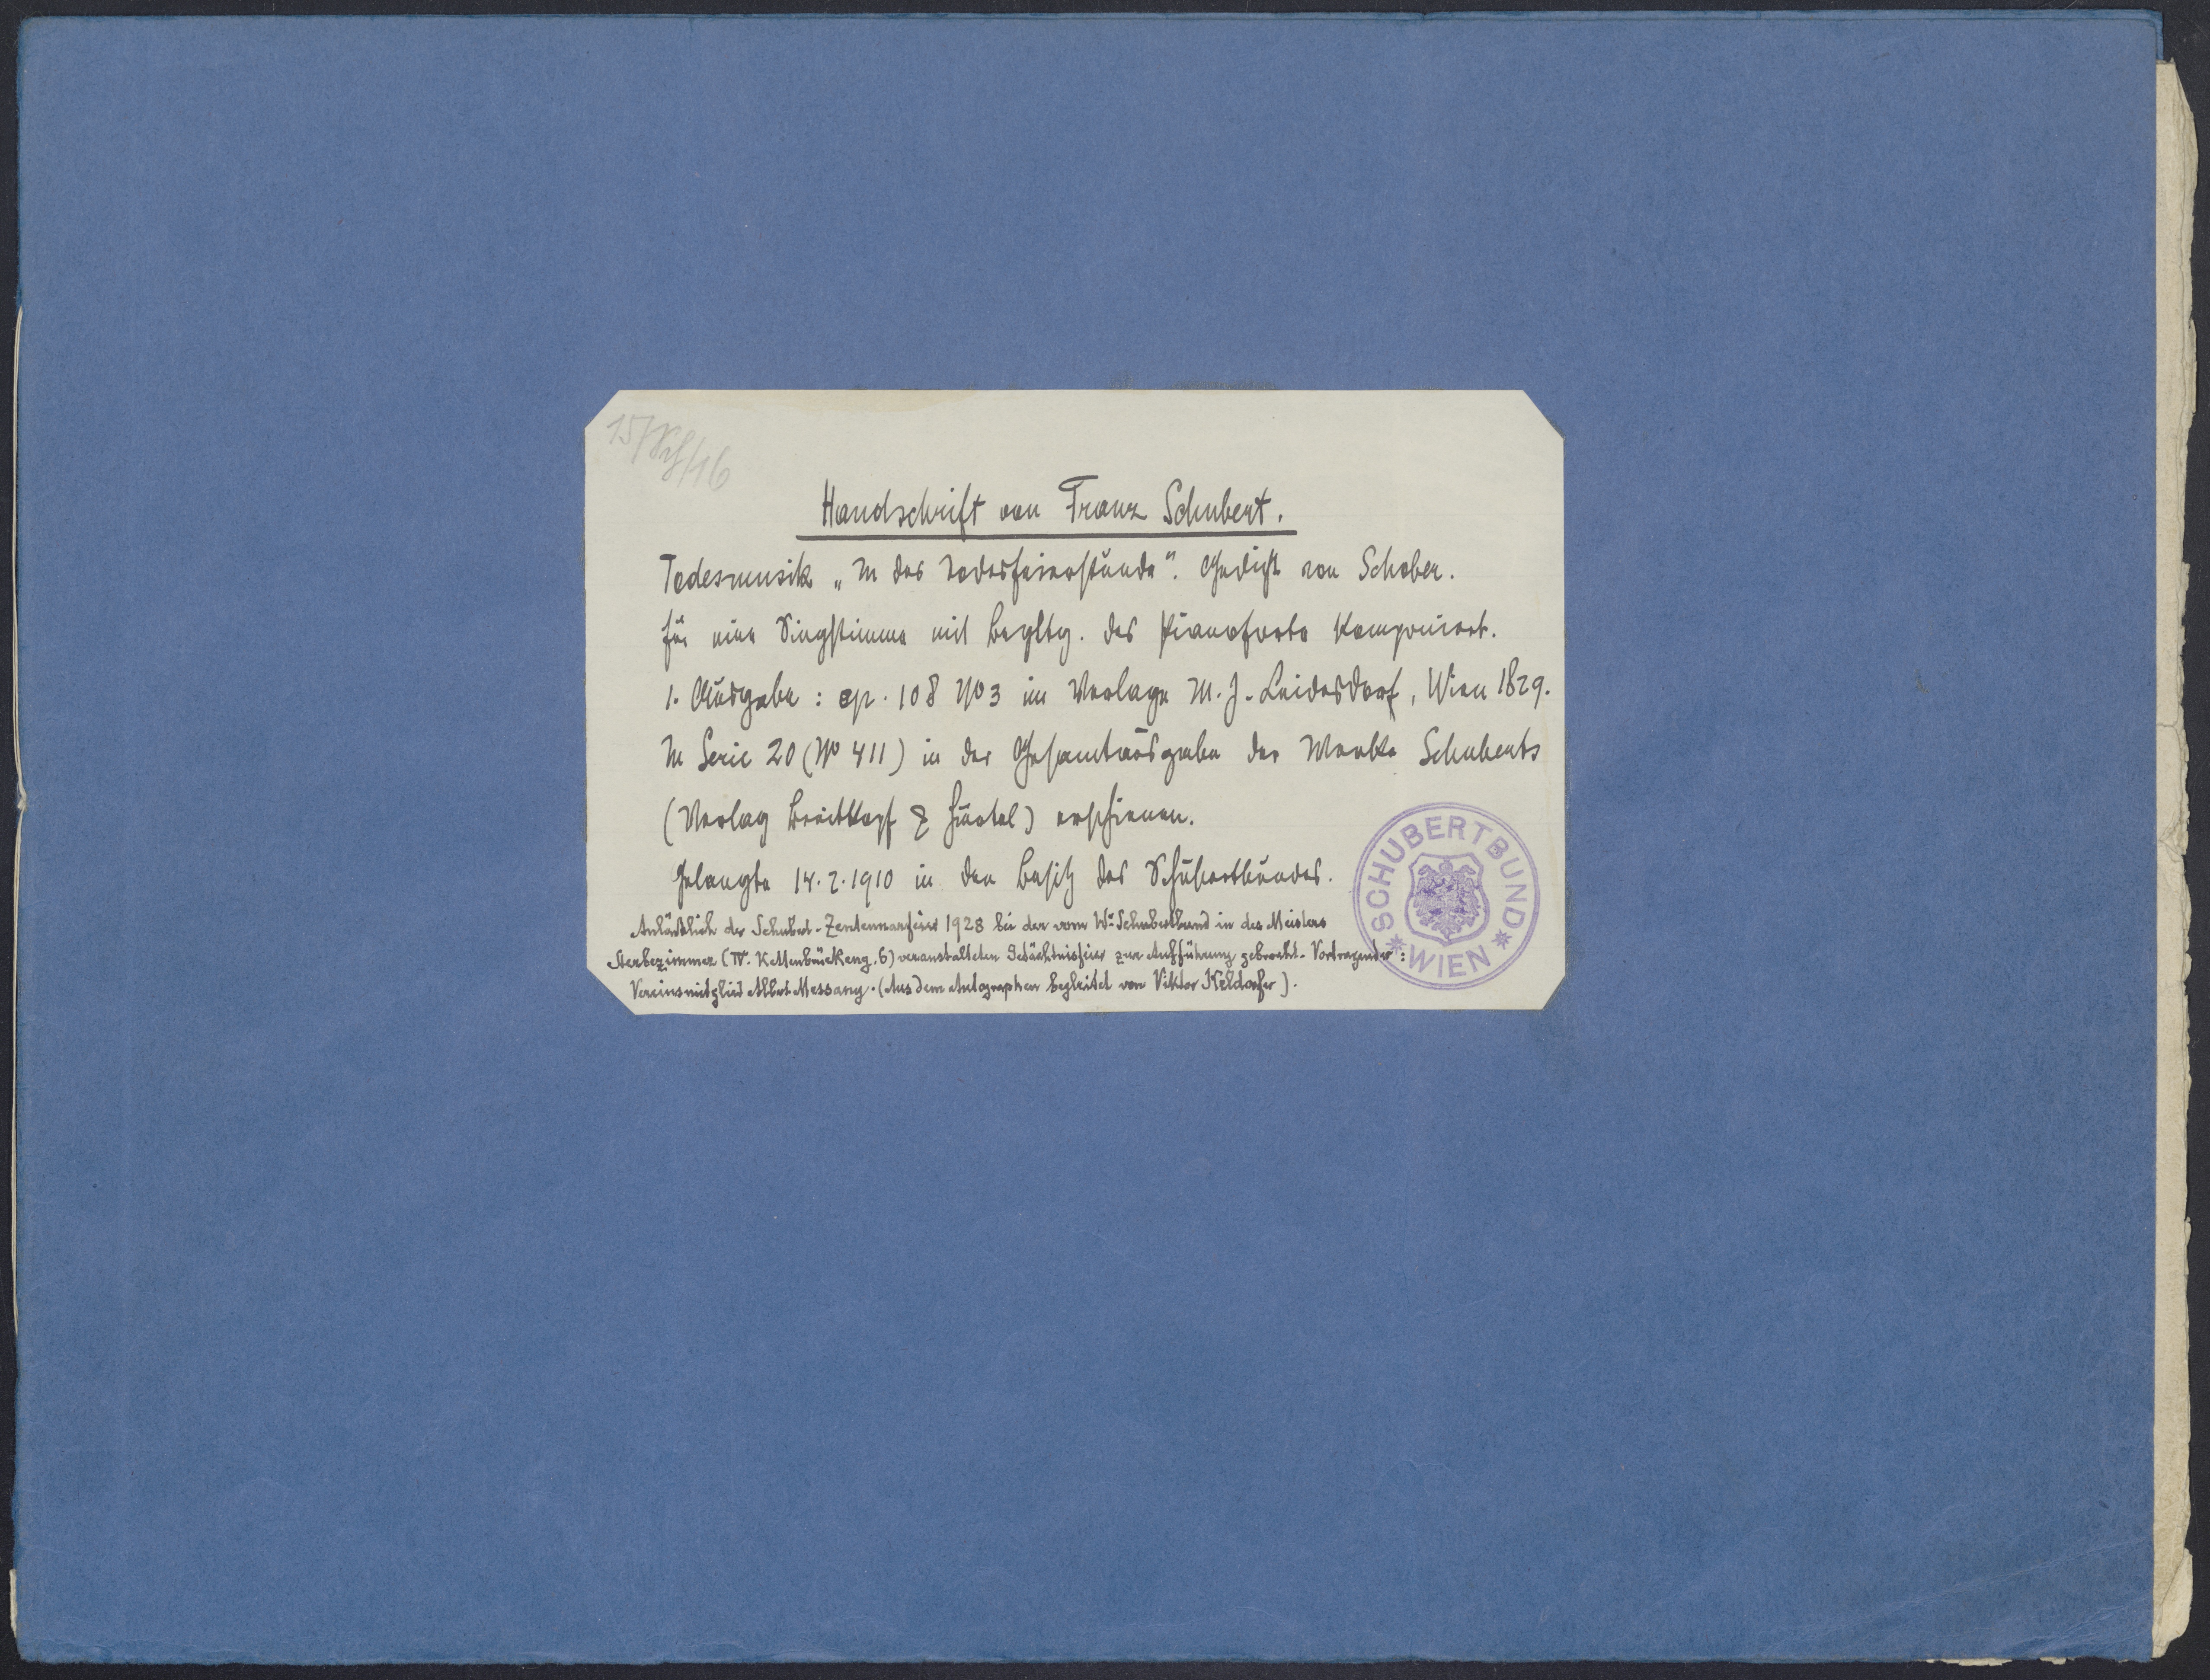 15/Sch/16
Handschrift von Franz Schubert.
Todesmusik „In des Todesfeierstunde“. Gedicht von Schober.
für eine Singstimme mit Begltg. des Pianoforte komponiert.
1. Ausgabe : op. 108 No 3 im Verlage M. J. Leidesdorf, Wien 1829.
In Serie 20 (No 411) in der Gesamtausgabe der Werke Schuberts
(Verlag Breitkopf & Härtel) erschienen.
Gelangte 14.2.1910 in den Besitz des Schubertbundes.
Anläßlich der Schubert-Zentennarfeier 1928 bei der vom Wr Schubertbund in des Meisters
Sterbezimmer (IV. Kettenbrückeng. 6) veranstalteten Gedächtnisfeier zur Aufführung gebracht. Vortragender :
Vereinsmitglied Albert Massany. (Aus dem Autographen begleitet von Viktor Keldorfer).
SCHUBERTBUND * WIEN *